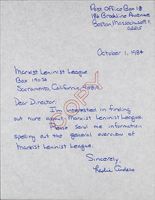 Post Office Box 18
186 Brookline Avenue
Boston Massachusetts
02215
October 1, 1984
Marxist Leninist League
Box 19074
Sacramento, California, 
Dear Director:
I'm interested in finding
out more about Marxist Leninist League.
Please send me information
spelling out the general overview of
Marxist Leninist League.
Sincerely,
COPY